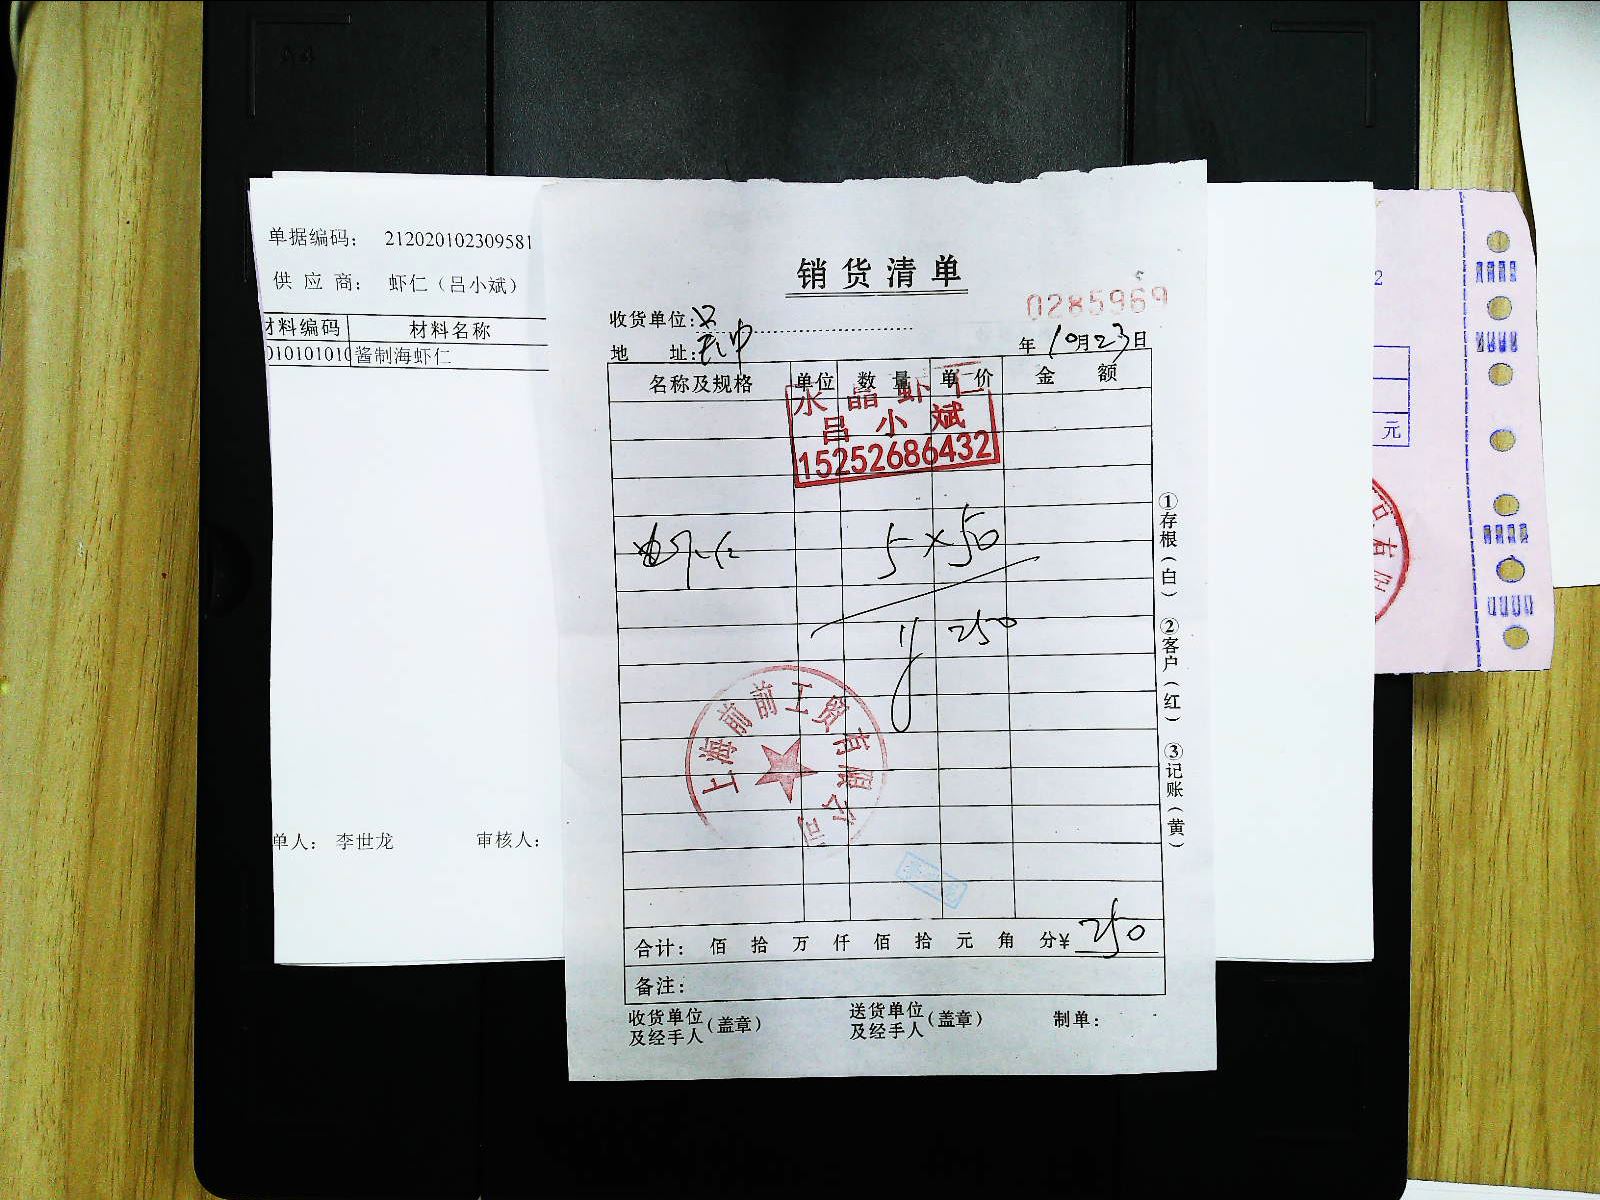 单据编码： 212020102309581
供 应 商： 虾仁（吕小斌）
材料编码 材料名称
010101010 酱制海虾仁
单人： 李世龙 审核人：
销货清单
0285969
收货单位：
地 址：
年 10月23日
名称及规格 单位 数量 单价 金额
水晶虾仁
吕小斌
15252686432
虾仁 5×50
250
上海前前工贸有限公司
合计： 佰 拾 万 仟 佰 拾 元 角 分¥ 250
备注：
收货单位及经手人（盖章） 送货单位及经手人（盖章） 制单：
①存根（白） ②客户（红） ③记账（黄）
2
元